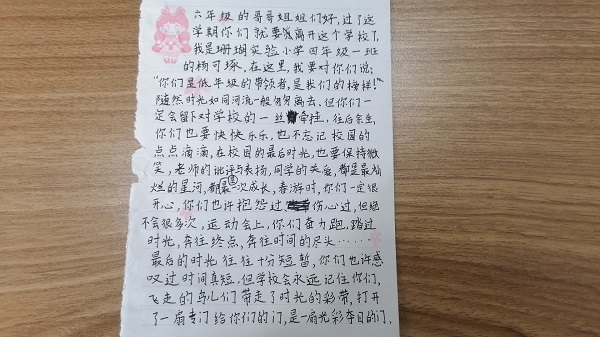 六年级的哥哥姐姐们好，过了这
学期你们就要离开这个学校了，
我是珊瑚实验小学四年级一班
的杨可琢，在这里，我要对你们说：
“你们是低年级的带领者，是我们的榜样！”
随然时光如同河流一般匆匆离去，但你们一
定会留下对学校的一丝牵挂，往后余生，
你们也要快快乐乐，也不忘记校园的
点点滴滴，在校园的最后时光，也要保持微
笑，老师的批评与表扬，同学的关爱，都是最灿
烂的星河，都是一次成长，春游时，你们一定很
开心，你们也许抱怨过，伤心过，但绝
不会很多次，运动会上，你们奋力跑，踏过
时光，奔往终点，奔往时间的尽头……
最后的时光往往十分短暂，你们也许感
叹过时间真短，但学校会永远记住你们，
飞走的鸟儿们带走了时光的彩带，打开
了一扇专门给你们的门，是一扇光彩夺目的门，